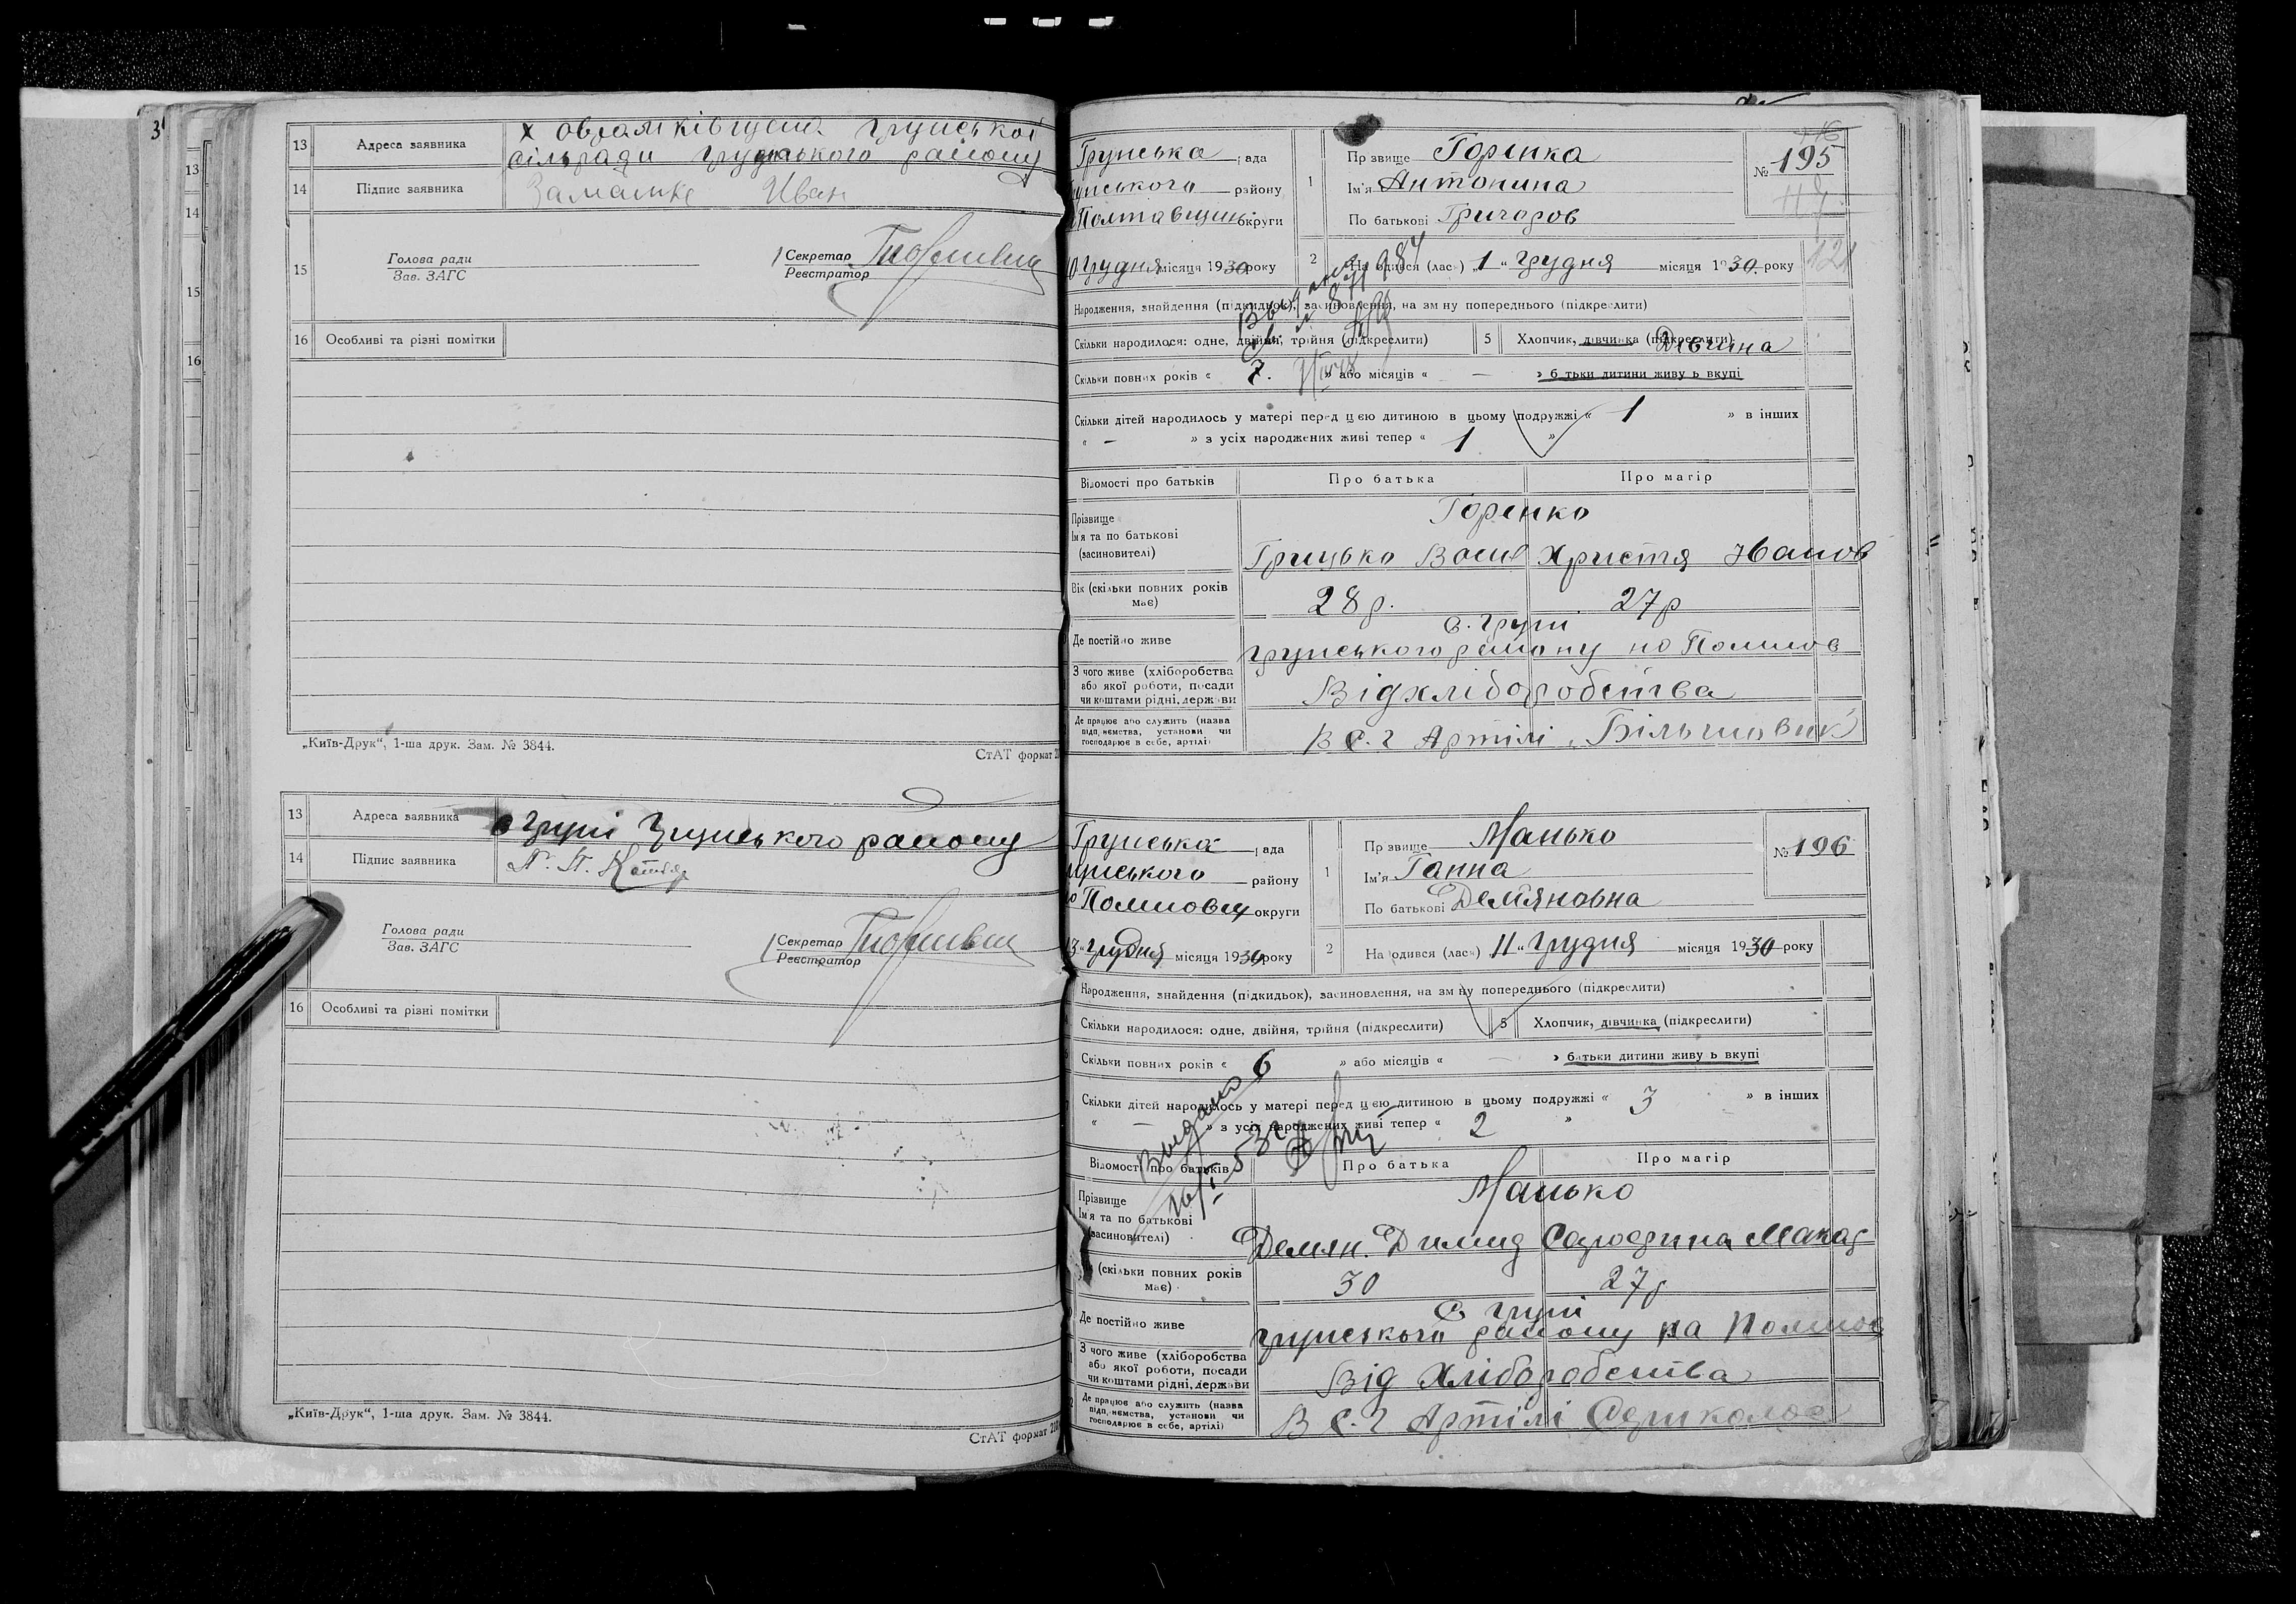 13 Адреса заявника х Грунської
сільради Грунського району
14 Підпис заявника Іван
15 Голова ради
Зав. ЗАГС
Секретар
Реєстратор
16 Особливі та різні помітки
„Київ-Друк“, 1-ша друк. Зам. № 3844.
СтАТ формат
13 Адреса заявника с Груні Грунського району
14 Підпис заявника
Голова ради
Зав. ЗАГС
Секретар
Реєстратор
16 Особливі та різні помітки
„Київ-Друк“, 1-ша друк. Зам. № 3844.
СтАТ формат
Грунська рада
району
округи
Грудня місяця 1930 року
1 Прізвище Горенко
Ім'я Антонина
По батькові Григоров
№ 195
2 Народився (лась) „1“ Грудня місяця 1930 року
121
Народження, знайдення (підкидьок), засиновлення, на зміну попереднього (підкреслити)
Скільки народилося: одне, двійня, трійня (підкреслити) 5 Хлопчик, дівчинка (підкреслити) Дівчина
Скільки повних років « 7. » або місяців « — » батьки дитини живуть вкупі
Скільки дітей народилось у матері перед цією дитиною в цьому подружжі « 1 » в інших
« — » з усіх народжених живі тепер « 1 »
Відомості про батьків Про батька Про матір
Прізвище Горенко
Ім'я та по батькові
(засиновителі) Грицько Васил Христя Іванов
Вік (скільки повних років
має) 28 р. 27 р
с. Груні
Де постійно живе Грунського району на
З чого живе (хліборобства
або якої роботи, посади
чи коштами рідні, держави Від хліборобства
Де працює або служить (назва
підприємства, установи чи
господарює в себе, артілі) В С. Г Артілі „Більшовик“
Грунська рада
району
округи
13 „Грудня місяця 1930 року
1 Прізвище Манько
Ім'я Ганна
По батькові Демяновна
№ 196
2 Народився (лась) „11“ Грудня місяця 1930 року
Народження, знайдення (підкидьок), засиновлення, на зміну попереднього (підкреслити)
Скільки народилося: одне, двійня, трійня (підкреслити) 5 Хлопчик, дівчинка (підкреслити)
Скільки повних років « 6 » або місяців « — » батьки дитини живуть вкупі
Скільки дітей народилось у матері перед цією дитиною в цьому подружжі « 3 » в інших
« — » з усіх народжених живі тепер « 2 »
Выдано
Відомості про батьків Про батька Про матір
Прізвище Манько
Ім'я та по батькові
(засиновителі) Демян. Макар
(скільки повних років
має) 30 27 р
с Груні
Де постійно живе Грунського району на
З чого живе (хліборобства
або якої роботи, посади
чи коштами рідні, держави Від Хліборобства
Де працює або служить (назва
підприємства, установи чи
господарює в себе, артілі) В С. Г Артілі